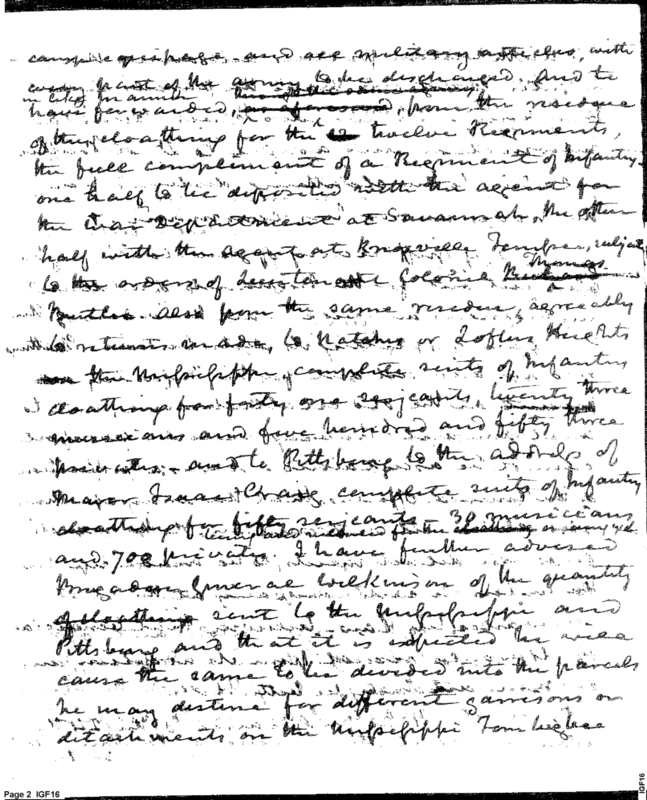 camp equipage and all military articles, with
every part of the army to be discharged. And to
in like manner
have forwarded, as aforesaid, from the residue
of the cloathing for the twelve Regiments,
the full complement of a Regiment of Infantry
one half to be deposited with the agent for
the War Department at Savannah, the other
half with the agent at Knoxville Tennessee, subject
Thomas
to the orders of Lieutenant Colonel Richard
Butler. Also from the same residue, agreeably
to returns made, to Natches or Loftus Heights
on the Mississippi, complete suits of Infantry
cloathing for forty one serjeants, twenty three
musicians and five hundred and fifty three
privates - and to Pittsburg to the address of
Major Isaac Craig complete suits of Infantry
cloathing for fifty serjeants 30 musicians
and 700 privates. I have further advised
Brigadier General Wilkinson of the quantity
of cloathing sent to the Mississippi and
Pittsburg and that it is expected he will
cause the same to be divided into the parcels
he may destine for different garrisons or
detachments on the Mississippi Tombigbee
Page 2 IGF16
IGF16